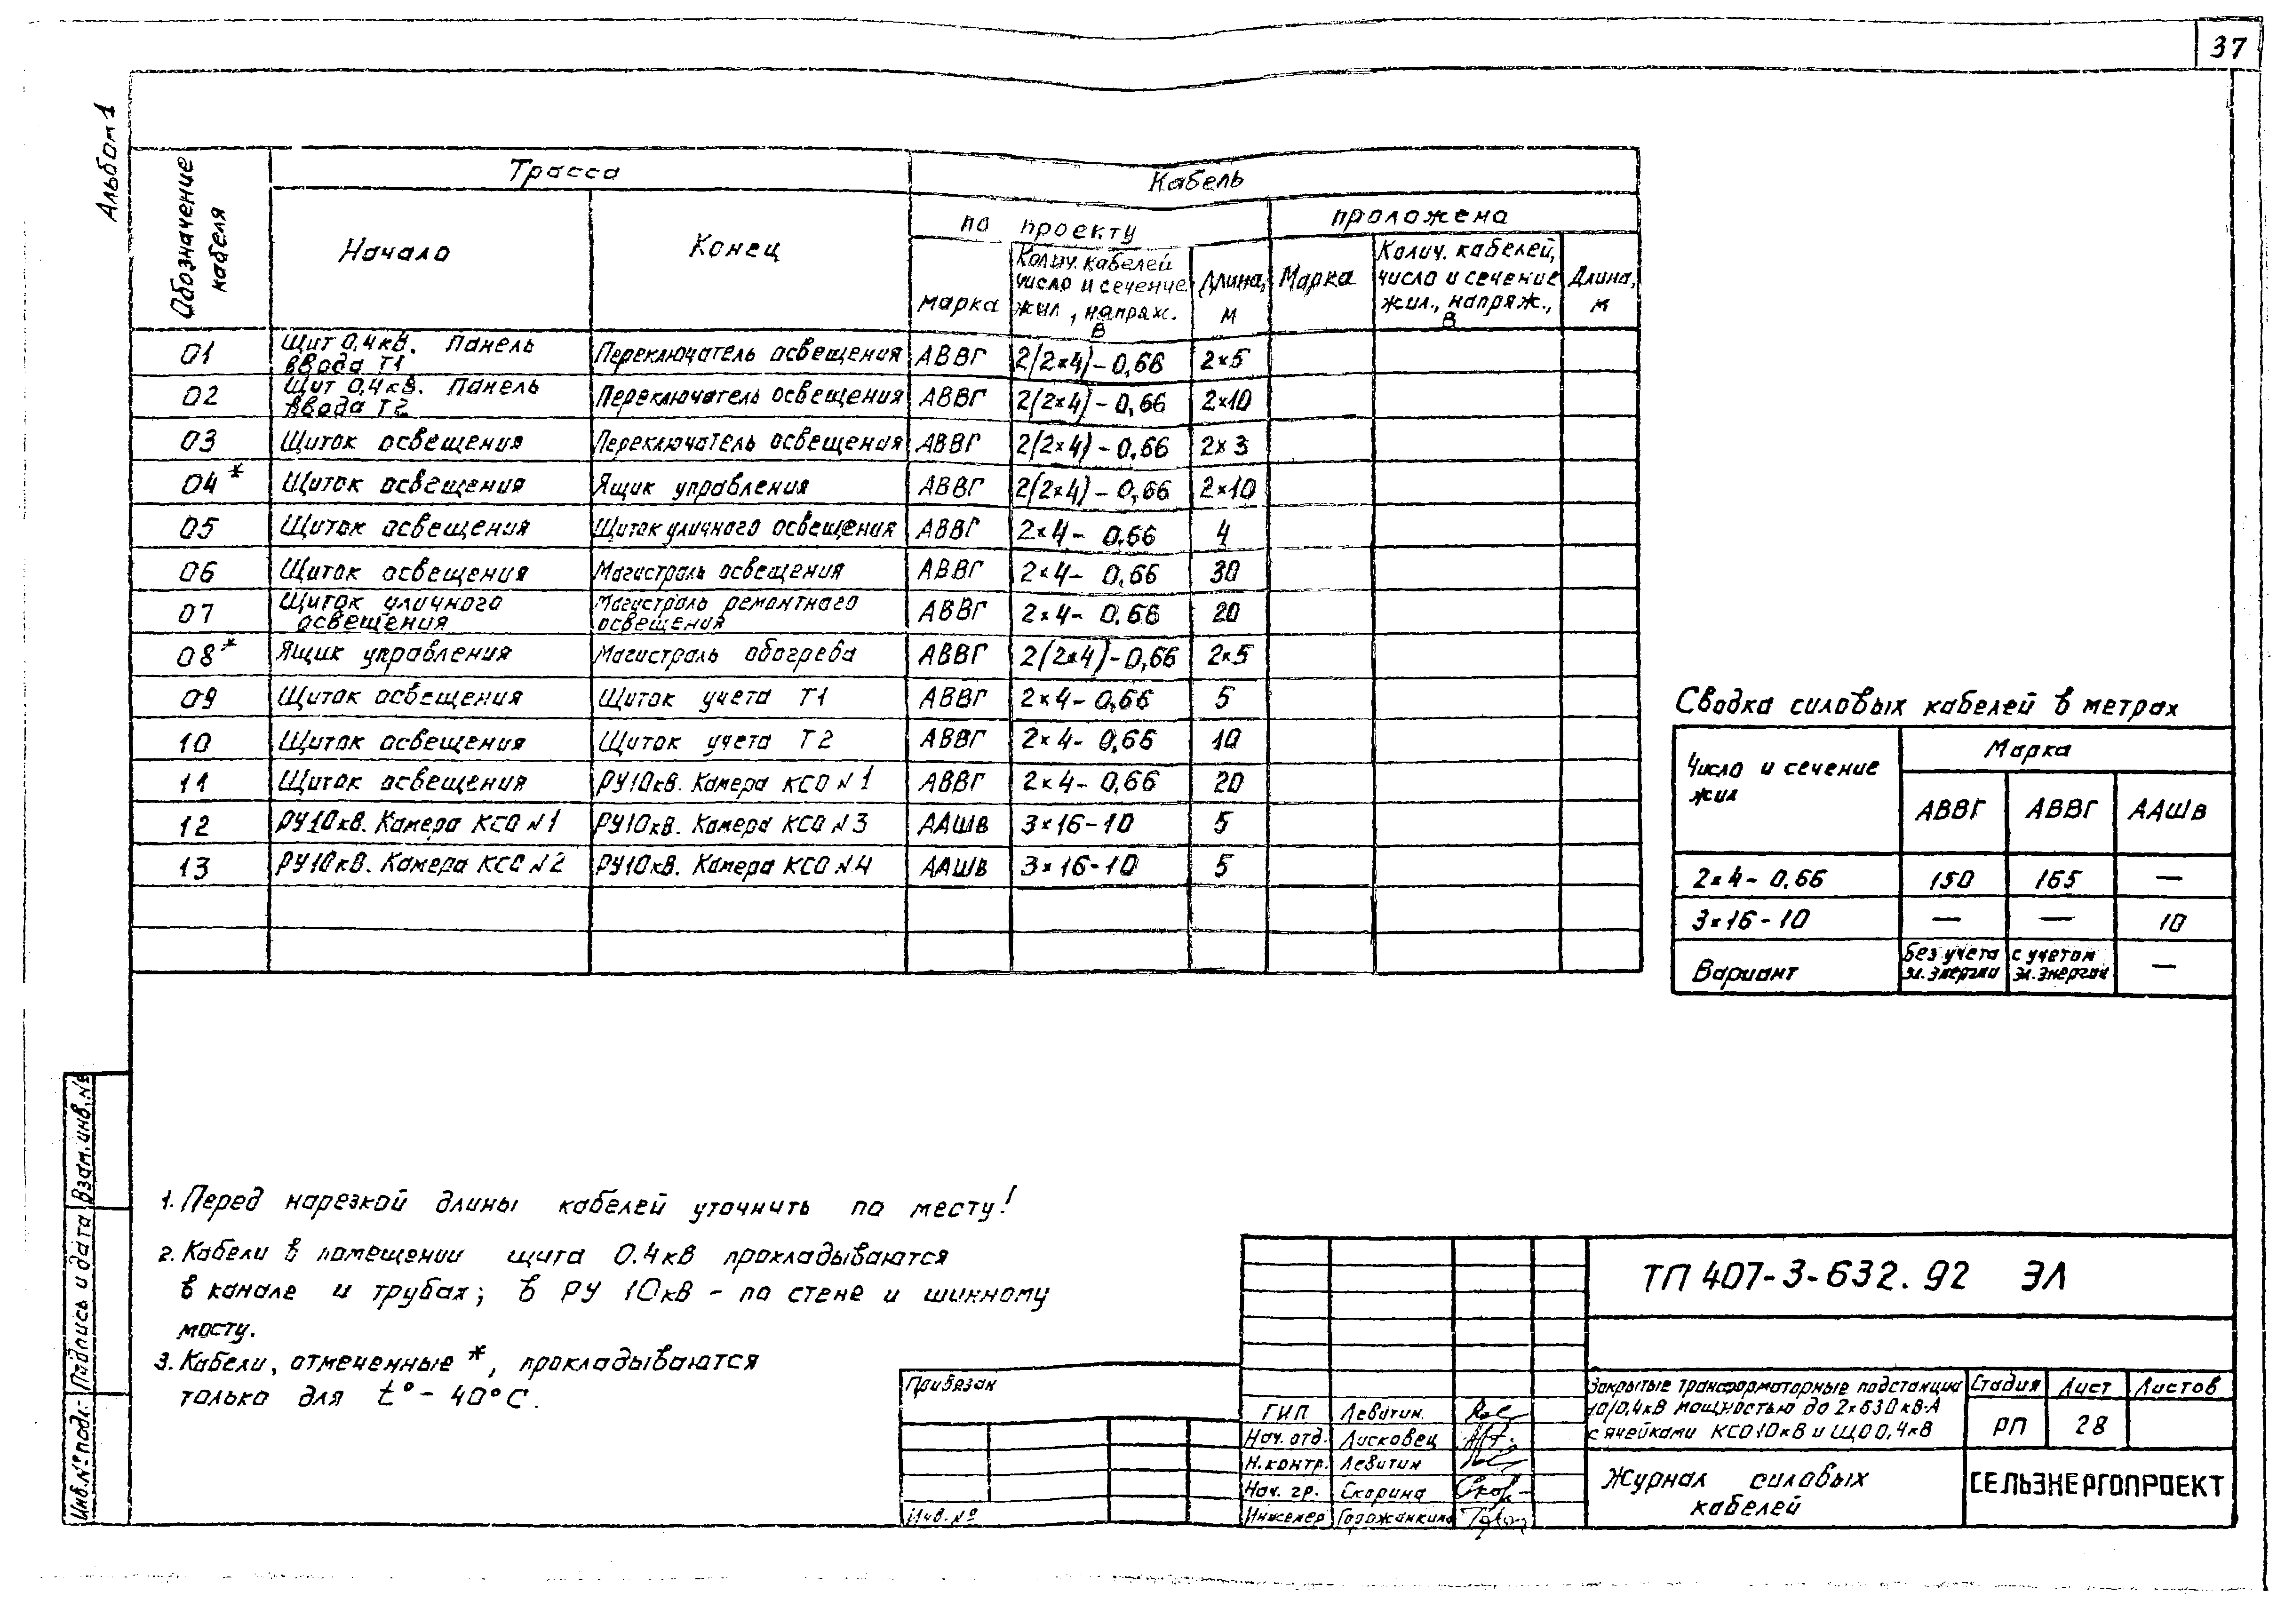 37
Альбом 1
Обозначение кабеля
Трасса
Кабель
Начало
Конец
по проекту
проложена
марка
Колич. кабелей число и сечение жил, напряж. В
Длина, м
Марка
Колич. кабелей, число и сечение жил., напряж., В
Длина, м
01 Щит 0,4кВ. Панель ввода Т1 Переключатель освещения АВВГ 2(2×4)-0,66 2×5
02 Щит 0,4кВ. Панель ввода Т2 Переключатель освещения АВВГ 2(2×4)-0,66 2×10
03 Щиток освещения Переключатель освещения АВВГ 2(2×4)-0,66 2×3
04* Щиток освещения Ящик управления АВВГ 2(2×4)-0,66 2×10
05 Щиток освещения Щиток уличного освещения АВВГ 2×4-0,66 4
06 Щиток освещения Магистраль освещения АВВГ 2×4-0,66 30
07 Щиток уличного освещения Магистраль ремонтного освещения АВВГ 2×4-0,66 20
08* Ящик управления Магистраль обогрева АВВГ 2(2×4)-0,66 2×5
09 Щиток освещения Щиток учета Т1 АВВГ 2×4-0,66 5
10 Щиток освещения Щиток учета Т2 АВВГ 2×4-0,66 10
11 Щиток освещения РУ10кВ. Камера КСО N1 АВВГ 2×4-0,66 20
12 РУ10кВ. Камера КСО N1 РУ10кВ. Камера КСО N3 ААШв 3×16-10 5
13 РУ10кВ. Камера КСО N2 РУ10кВ. Камера КСО N4 ААШв 3×16-10 5
Сводка силовых кабелей в метрах
Число и сечение жил
Марка
АВВГ АВВГ ААШв
2×4-0,66 150 165 —
3×16-10 — — 10
Вариант без учета эл.энергии с учетом эл.энергии —
1. Перед нарезкой длины кабелей уточнить по месту!
2. Кабели в помещении щита 0.4кВ прокладываются
в канале и трубах; в РУ 10кВ - по стене и шинному
мосту.
3. Кабели, отмеченные *, прокладываются
только для t°-40°С.
Взам. инв. №
Подпись и дата
Инв.№ подл.
Привязан
Инв. №
ТП 407-3-632.92 ЭЛ
ГИП Левитин
Нач. отд. Лисковец
Н.контр. Левитин
Нач. гр. Скорина
Инженер Горожанкина
Закрытые трансформаторные подстанции
10/0,4кВ мощностью до 2×630кВ·А
с ячейками КСО10кВ и ЩО0,4кВ
Стадия Лист Листов
РП 28
Журнал силовых
кабелей
СЕЛЬЭНЕРГОПРОЕКТ